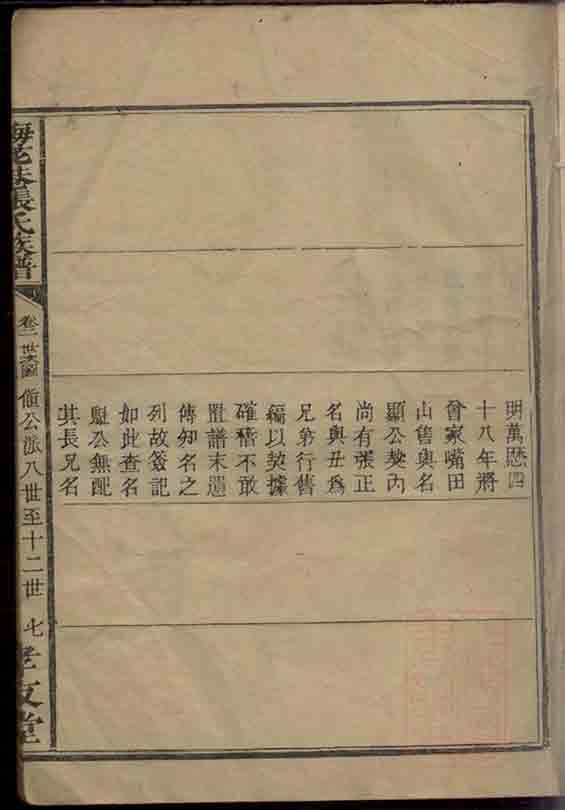 明萬厯四
十八年將
曾家嘴田
山售與名
顯公契內
尚有張正
名與丑爲
兄弟行售
編以契據
確稽不敢
置譜末遺
傳知名之
列故簽記
如此查名
魁公無配
其長兄名
張氏族譜
卷二 世系圖 傾公派八世至十二世 七
孝友堂